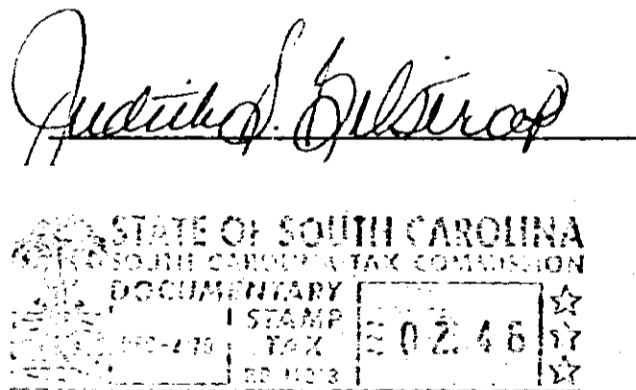 Judith S. Gilstrap
STATE OF SOUTH CAROLINA
SOUTH CAROLINA TAX COMMISSION
DOCUMENTARY
STAMP
TAX
02.46